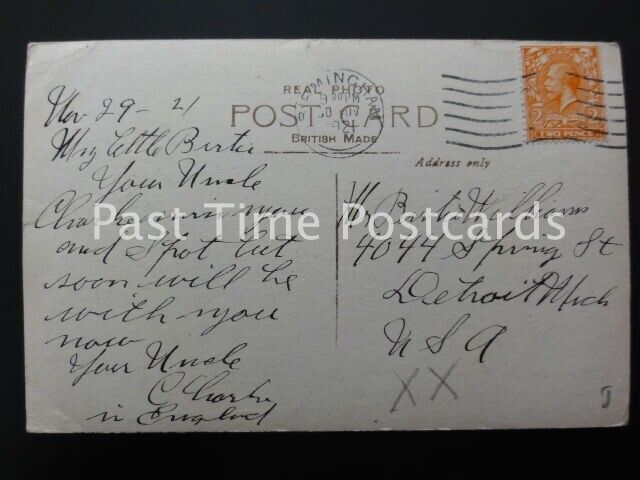 REAL PHOTO
POST CARD
BRITISH MADE
BIRMINGHAM
9 30 PM
30 NOV
1921
TWO PENCE
Address only
Nov 29 - 21
My little Bertie
Your Uncle
Charlie miss you
and Spot but
soon will be
with you
now
Your Uncle
Charlie
in England
Mr Bertie Williams
4044 Spring St
Detroit Mich
U S A
XX
Past Time Postcards